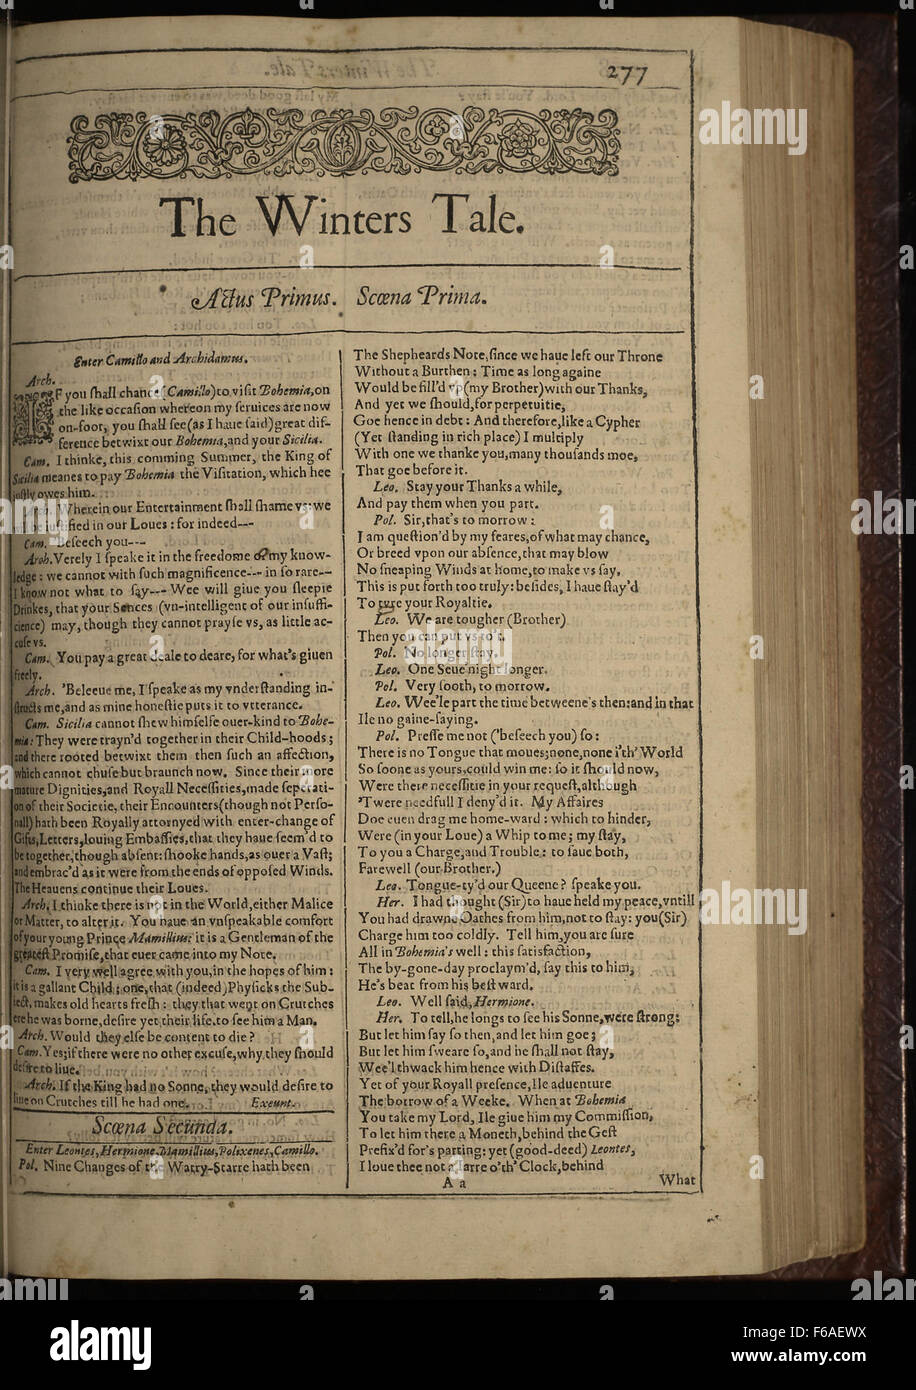 277
The Winters Tale.
Actus Primus. Scœna Prima.
Enter Camillo and Archidamus.
Arch.
IF you ſhall chance (Camillo) to viſit Bohemia, on
the like occaſion whereon my ſeruices are now
on-foot, you ſhall ſee (as I haue ſaid) great dif-
ference betwixt our Bohemia, and your Sicilia.
Cam. I thinke, this comming Summer, the King of
Sicilia meanes to pay Bohemia the Viſitation, which hee
iuſtly owes him.
Arch. Wherein our Entertainment ſhall ſhame vs: we
will be iuſtified in our Loues: for indeed---
Cam. 'Beſeech you---
Arch. Verely I ſpeake it in the freedome of my know-
ledge: we cannot with ſuch magnificence--- in ſo rare---
I know not what to ſay--- Wee will giue you ſleepie
Drinkes, that your Sences (vn-intelligent of our inſuffi-
cience) may, though they cannot prayſe vs, as little ac-
cuſe vs.
Cam. You pay a great deale to deare, for what's giuen
freely.
Arch. 'Beleeue me, I ſpeake as my vnderſtanding in-
ſtructs me, and as mine honeſtie puts it to vtterance.
Cam. Sicilia cannot ſhew himſelfe ouer-kind to Bohe-
mia: They were trayn'd together in their Child-hoods;
and there rooted betwixt them then ſuch an affection,
which cannot chuſe but braunch now. Since their more
mature Dignities, and Royall Neceſſities, made ſeperati-
on of their Societie, their Encounters (though not Perſo-
nall) hath been Royally attornyed with enter-change of
Gifts, Letters, louing Embaſſies, that they haue ſeem'd to
be together, though abſent: ſhooke hands, as ouer a Vaſt;
and embrac'd as it were from the ends of oppoſed Winds.
The Heauens continue their Loues.
Arch. I thinke there is not in the World, either Malice
or Matter, to alter it. You haue an vnſpeakable comfort
of your young Prince Mamillius: it is a Gentleman of the
greateſt Promiſe, that euer came into my Note.
Cam. I very well agree with you, in the hopes of him:
it is a gallant Child; one, that (indeed) Phyſicks the Sub-
iect, makes old hearts freſh: they that went on Crutches
ere he was borne, deſire yet their life, to ſee him a Man.
Arch. Would they elſe be content to die?
Cam. Yes; if there were no other excuſe, why they ſhould
deſire to liue.
Arch. If the King had no Sonne, they would deſire to
liue on Crutches till he had one. Exeunt.
Scœna Secunda.
Enter Leontes, Hermione, Mamillius, Polixenes, Camillo.
Pol. Nine Changes of the Watry-Starre hath been
The Shepheards Note, ſince we haue left our Throne
Without a Burthen: Time as long againe
Would be fill'd vp (my Brother) with our Thanks,
And yet we ſhould, for perpetuitie,
Goe hence in debt: And therefore, like a Cypher
(Yet ſtanding in rich place) I multiply
With one we thanke you, many thouſands moe,
That goe before it.
Leo. Stay your Thanks a while,
And pay them when you part.
Pol. Sir, that's to morrow:
I am queſtion'd by my feares, of what may chance,
Or breed vpon our abſence, that may blow
No ſneaping Winds at home, to make vs ſay,
This is put forth too truly: beſides, I haue ſtay'd
To tyre your Royaltie.
Leo. We are tougher (Brother)
Then you can put vs to't.
Pol. No longer ſtay.
Leo. One Seue'night longer.
Pol. Very ſooth, to morrow.
Leo. Wee'le part the time betweene's then: and in that
Ile no gaine-ſaying.
Pol. Preſſe me not ('beſeech you) ſo:
There is no Tongue that moues; none, none i'th' World
So ſoone as yours, could win me: ſo it ſhould now,
Were there neceſſitie in your requeſt, although
'Twere needfull I deny'd it. My Affaires
Doe euen drag me home-ward: which to hinder,
Were (in your Loue) a Whip to me; my ſtay,
To you a Charge, and Trouble: to ſaue both,
Farewell (our Brother.)
Leo. Tongue-ty'd our Queene? ſpeake you.
Her. I had thought (Sir) to haue held my peace, vntill
You had drawne Oathes from him, not to ſtay: you (Sir)
Charge him too coldly. Tell him, you are ſure
All in Bohemia's well: this ſatisfaction,
The by-gone-day proclaym'd, ſay this to him,
He's beat from his beſt ward.
Leo. Well ſaid, Hermione.
Her. To tell, he longs to ſee his Sonne, were ſtrong:
But let him ſay ſo then, and let him goe;
But let him ſweare ſo, and he ſhall not ſtay,
Wee'l thwack him hence with Diſtaffes.
Yet of your Royall preſence, Ile aduenture
The borrow of a Weeke. When at Bohemia
You take my Lord, Ile giue him my Commiſſion,
To let him there a Moneth, behind the Geſt
Prefix'd for's parting: yet (good-deed) Leontes,
I loue thee not a Iarre o'th' Clock, behind
A a What
alamy
alamy stock photo
F6AEWX
www.alamy.com